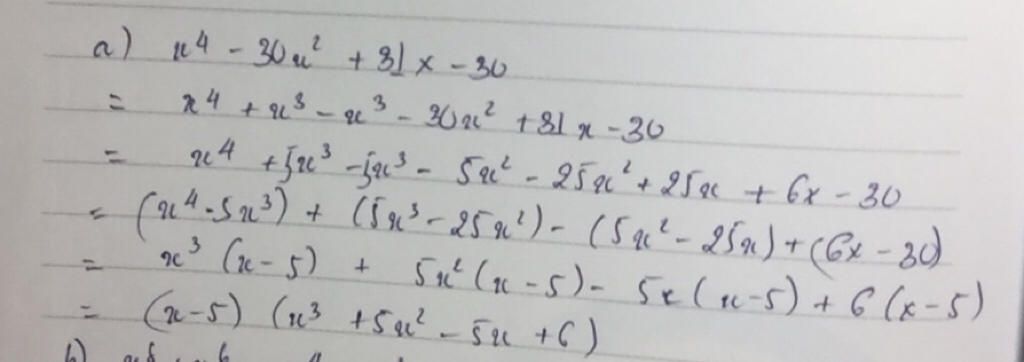 a) x⁴ - 30x² + 31x - 30
= x⁴ + x³ - x³ - 30x² + 31x - 30
= x⁴ + 5x³ - 5x³ - 5x² - 25x² + 25x + 6x - 30
= (x⁴ - 5x³) + (5x³ - 25x²) - (5x² - 25x) + (6x - 30)
= x³ (x - 5) + 5x² (x - 5) - 5x (x - 5) + 6 (x - 5)
= (x - 5) (x³ + 5x² - 5x + 6)
b)